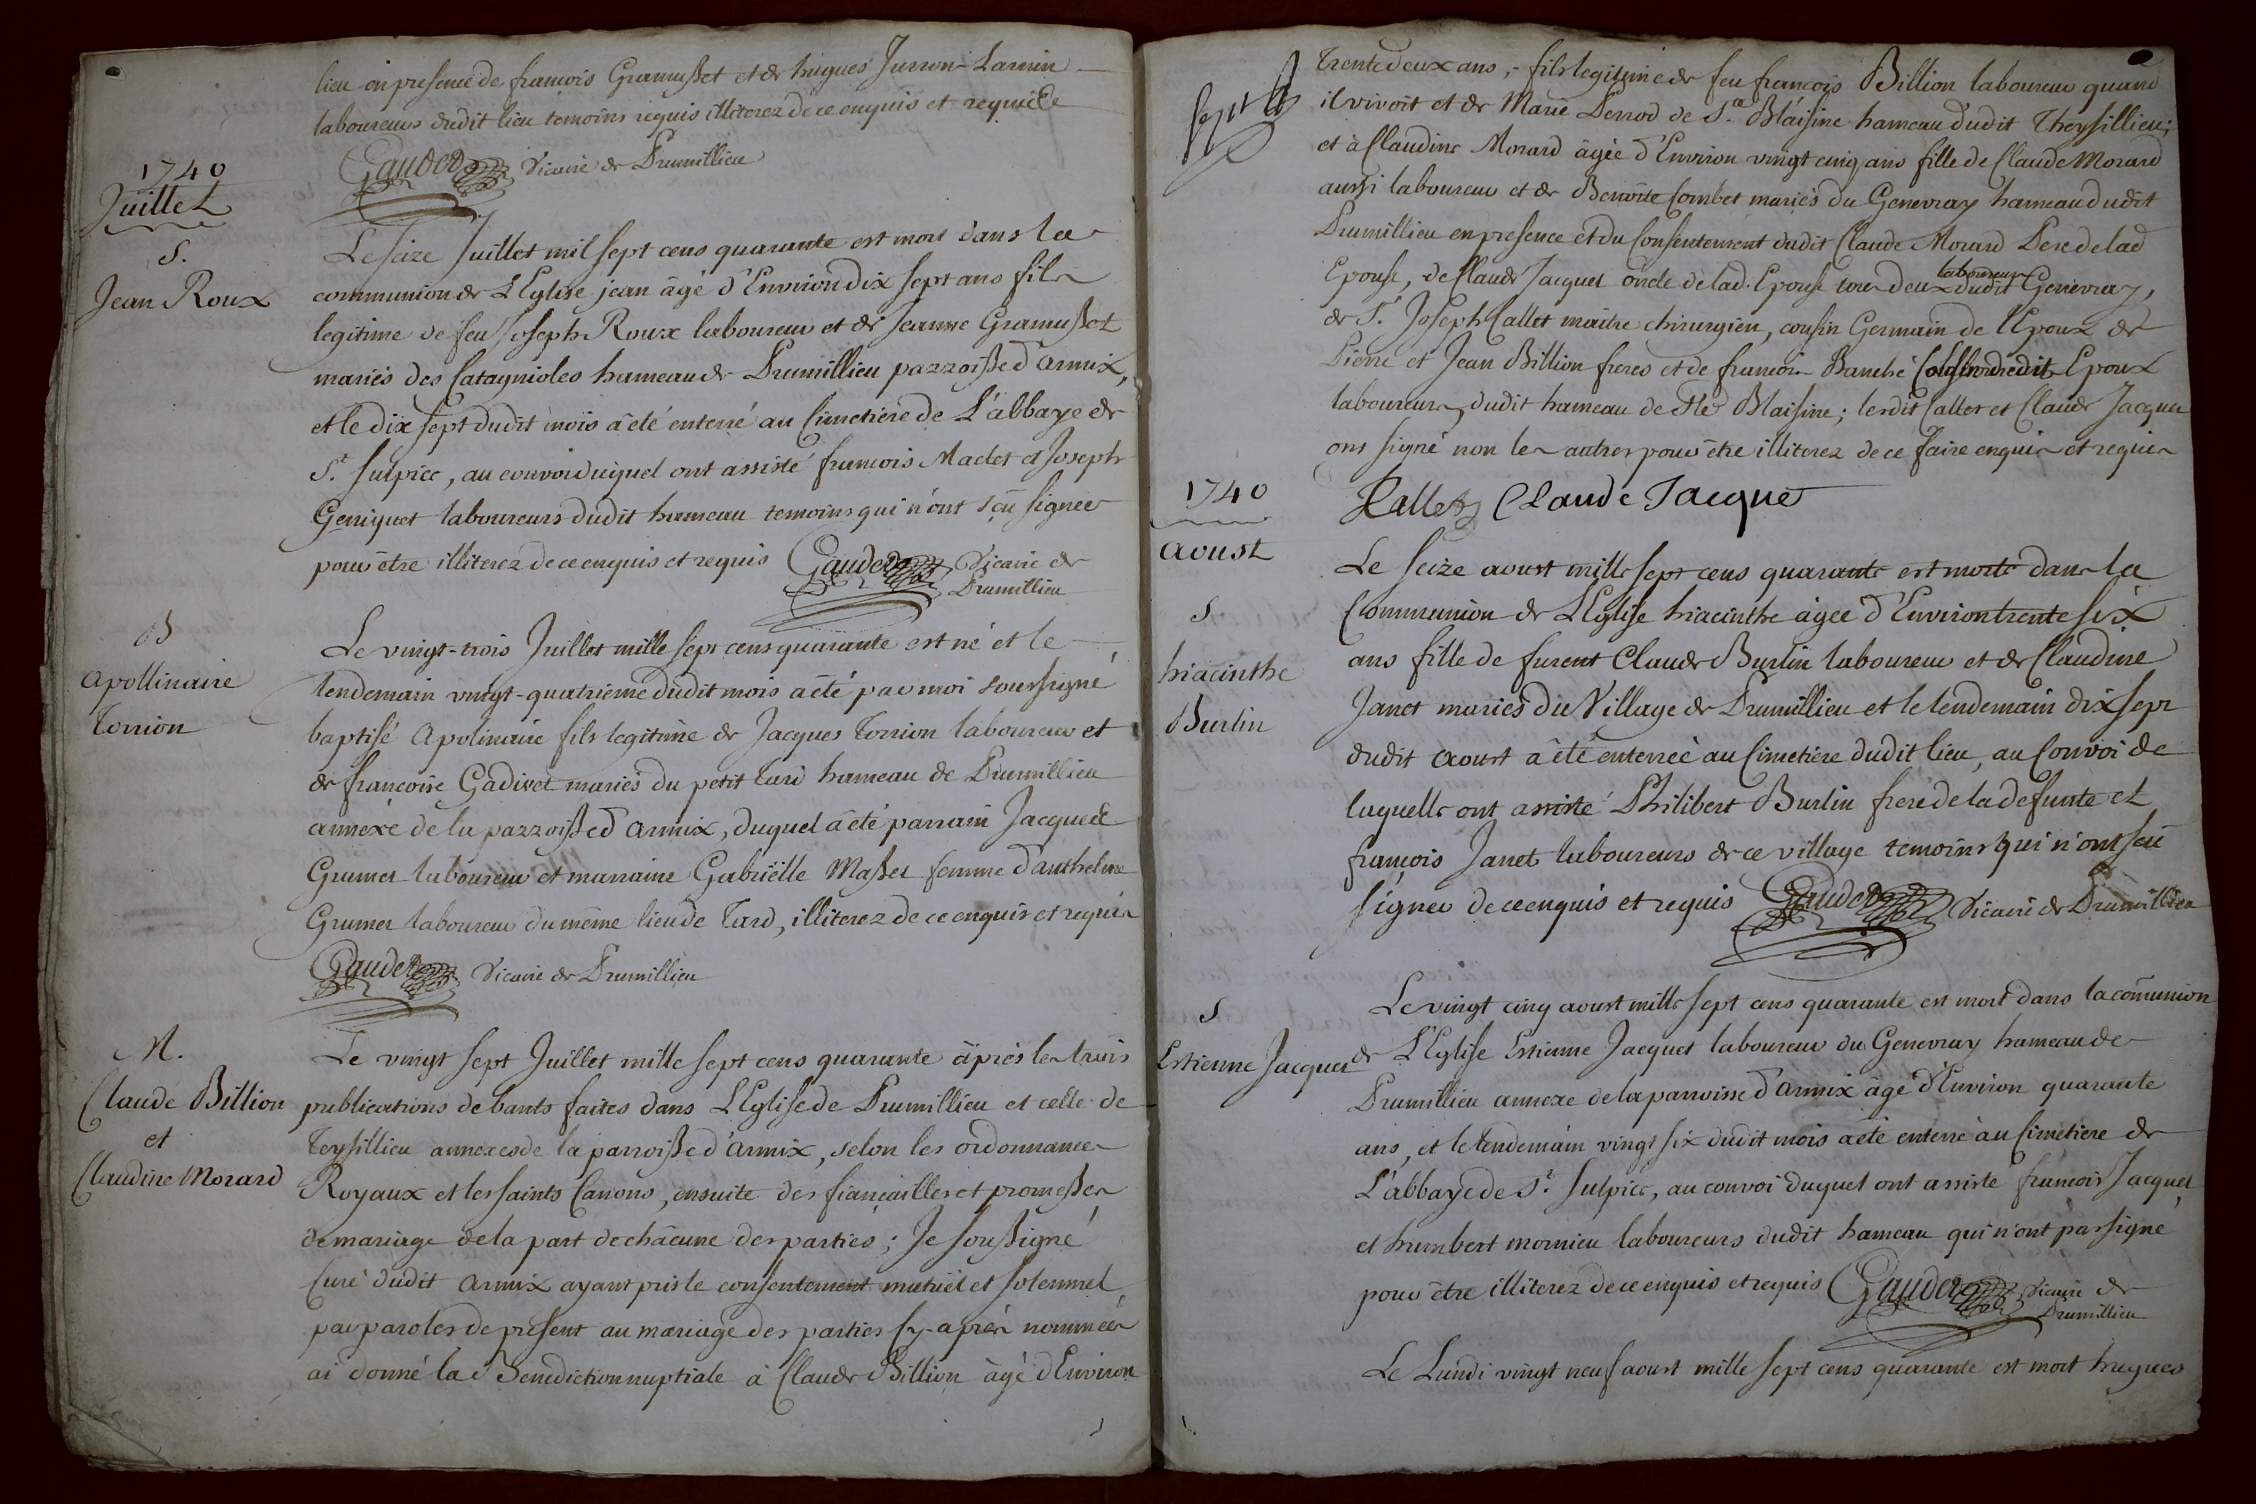 lieu en presence de francois Gramusset et de hugues Jurron-Larnin
laboureurs dudit lieu temoins requis illiterez de ce enquis et requis
Gaudet Vicaire de Prumillieu
1740
Juillet
S.
Jean Roux
Le seize Juillet mil sept cens quarante est mort dans la
communion de L'Eglise jean âgé d'Environ dix sept ans fils
legitime de feu Joseph Roux laboureur et de Jeanne Gramusset
mariés des Catagnioles hameau de Prumillieu parroisse d'armix,
et le dix sept dudit mois a été enterré au Cimetiere de L'abbaye de
St. sulpice, au convoi duquel ont assisté francois Maclet et Joseph
Geniquet laboureurs dudit hameau temoins qui n'ont sçu signer
pour être illiterez de ce enquis et requis Gaudet Vicaire de
Prumillieu
B
apollinaire
Torrion
Le vingt-trois Juillet mille sept cens quarante est né et le
lendemain vingt-quatrieme dudit mois a été par moi soussigné
baptisé Apolinaire fils legitime de Jacques Torrion laboureur et
de francoise Gadivet mariés du petit Tard hameau de Prumillieu
annéxe de la parroisse d'armix, duquel a été parrain Jacques
Grumet laboureur et marraine Gabriëlle Masset femme d'anthelme
Grumet laboureur du même lieu de Tard, illiterez de ce enquis et requis
Gaudet Vicaire de Prumillieu
M.
Claude Billion
et
Claudine Morard
Le vingt sept Juillet mille sept cens quarante âprés les trois
publications de bants faites dans L'Eglise de Prumillieu et celle de
Teysillieu annexes de la parroisse d'armix, selon les ordonnances
Royaux et les saints Canons, ensuite des fiancailles et promesses
de mariage de la part de châcune des parties; Je soussigné
Curé dudit armix ayant pris le consentement mutüel et solennel
par paroles de present au mariage des parties cy-aprés nommées
ai donné la Benediction nuptiale à Claude Billion âgé d'Environ
sept
trente deux ans, fils legitime de feu francois Billion laboureur quand
il vivoit et de Marie Perrod de Ste Blaisine hameau dudit Theysillieu;
et à Claudine Morard âgée d'Environ vingt cinq ans fille de Claude Morard
aussi laboureur et de Benoite Combet mariés du Genevray hameau dudit
Prumillieu en presence et du Consentement dudit Claude Morard Pere de lad
Epouse, de Claude Jacquet oncle de lad. Epouse tous deux laboureurs dudit Genevray,
de Sr. Joseph Callet maitre chirurgien, cousin Germain de l'Epoux de
Pierre et Jean Billion freres et de francois Banché dudit Epoux
laboureurs dudit hameau de Ste Blaisine; lesdit Callet et Claude Jacquet
ont signé non les autres pour être illiterez de ce faire enquis et requis
Callet Claude Jacque
1740
aoust
S
hiacinthe
Burlin
Le seize aoust mille sept cens quarante est morte dans la
Communion de L'Eglise hiacinthe âgée d'Environ trente six
ans fille de furent Claude Burlin laboureur et de Claudine
Janet mariés du Village de Prumillieu et le lendemain dix sept
dudit aoust a été enterrée au Cimetiere dudit lieu, au Convoi de
laquelle ont assisté Philibert Burlin frere de la defunte et
françois Janet laboureurs de ce village temoins qui n'ont sçu
signer de ce enquis et requis Gaudet Vicaire de Prumillieu
S
Estienne Jacquet
Le vingt cinq aoust mille sept cens quarante est mort dans la comunion
de L'Eglise Estienne Jacquet laboureur du Genevray hameau de
Prumillieu annexe de la parroisse d'armix âgé d'Environ quarante
ans, et le lendemain vingt six dudit mois a été enterré au Cimetiere de
L'abbaye de St. Sulpice, au convoi duquel ont assisté francois Jacquet
et humbert mornieu laboureurs dudit hameau qui n'ont pas signé
pour être illiterez de ce enquis et requis Gaudet Vicaire de
Prumillieu
Le Lundi vingt neuf aoust mille sept cens quarante est mort hugues